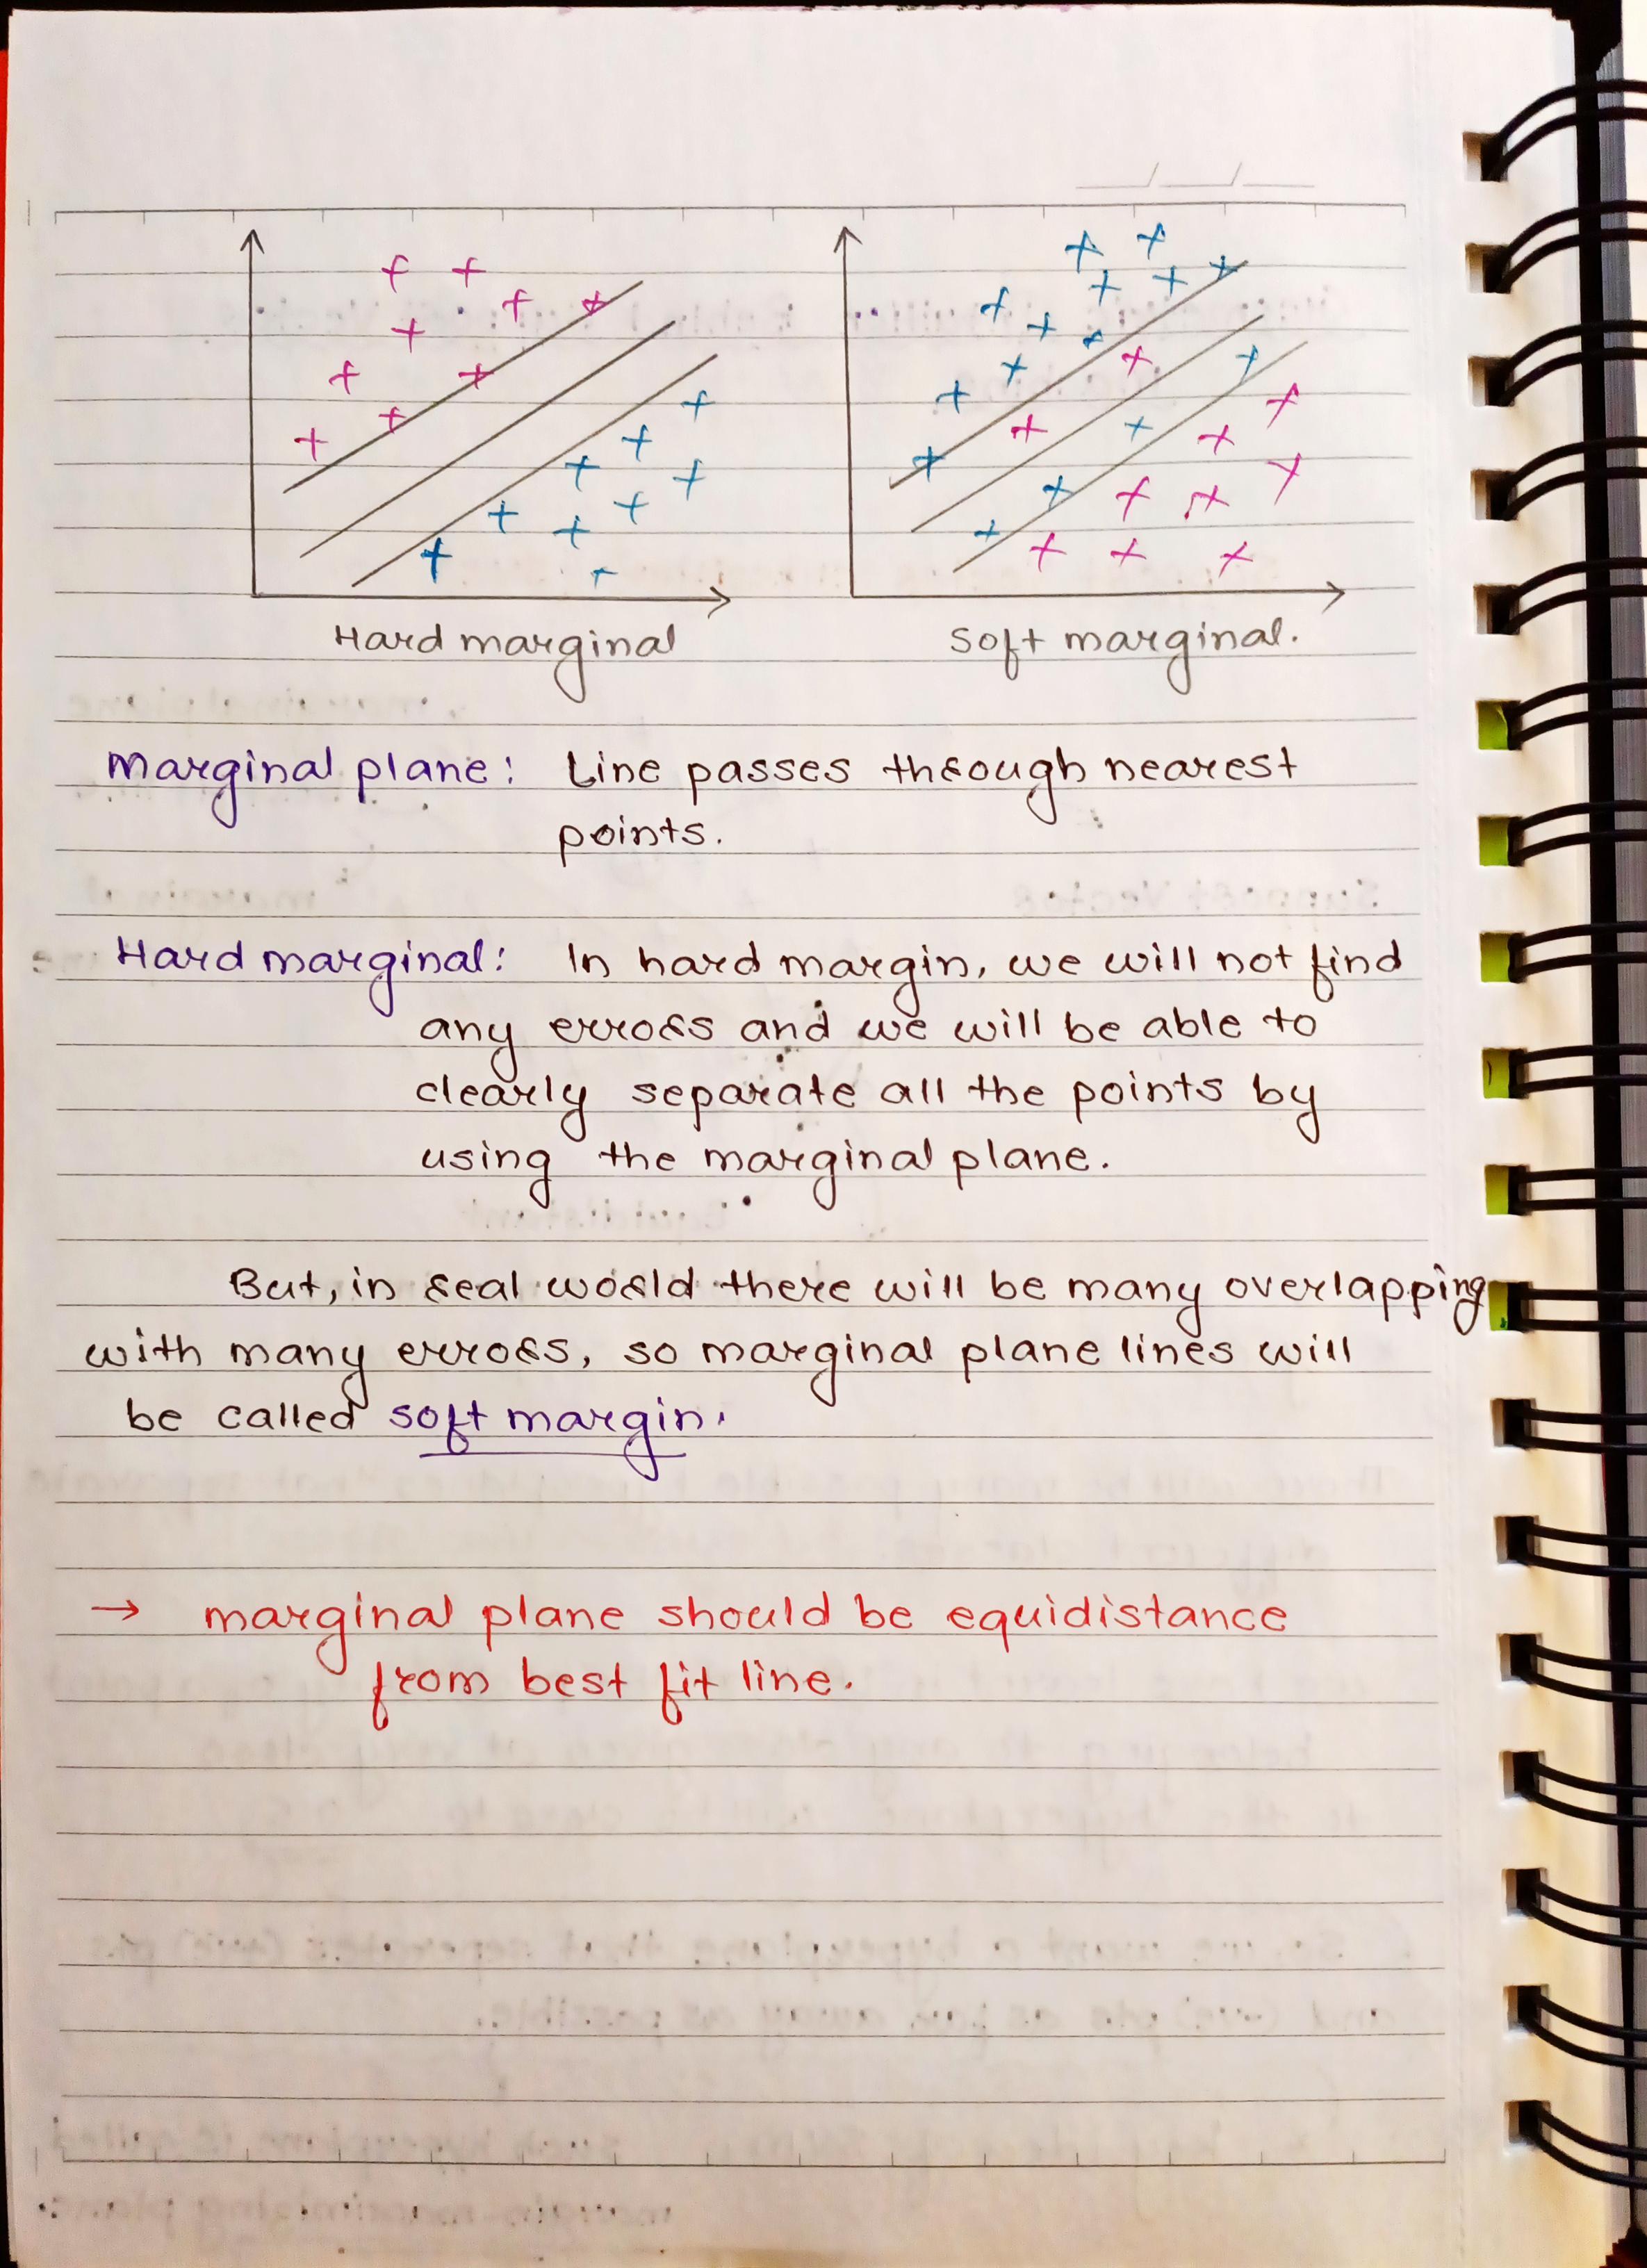 Hard marginal
Soft marginal.
Marginal plane: Line passes through nearest
points.
Hard marginal: In hard margin, we will not find
any errors and we will be able to
clearly separate all the points by
using the marginal plane.
But, in real world there will be many overlapping
with many errors, so marginal plane lines will
be called soft margin.
→ marginal plane should be equidistance
from best fit line.